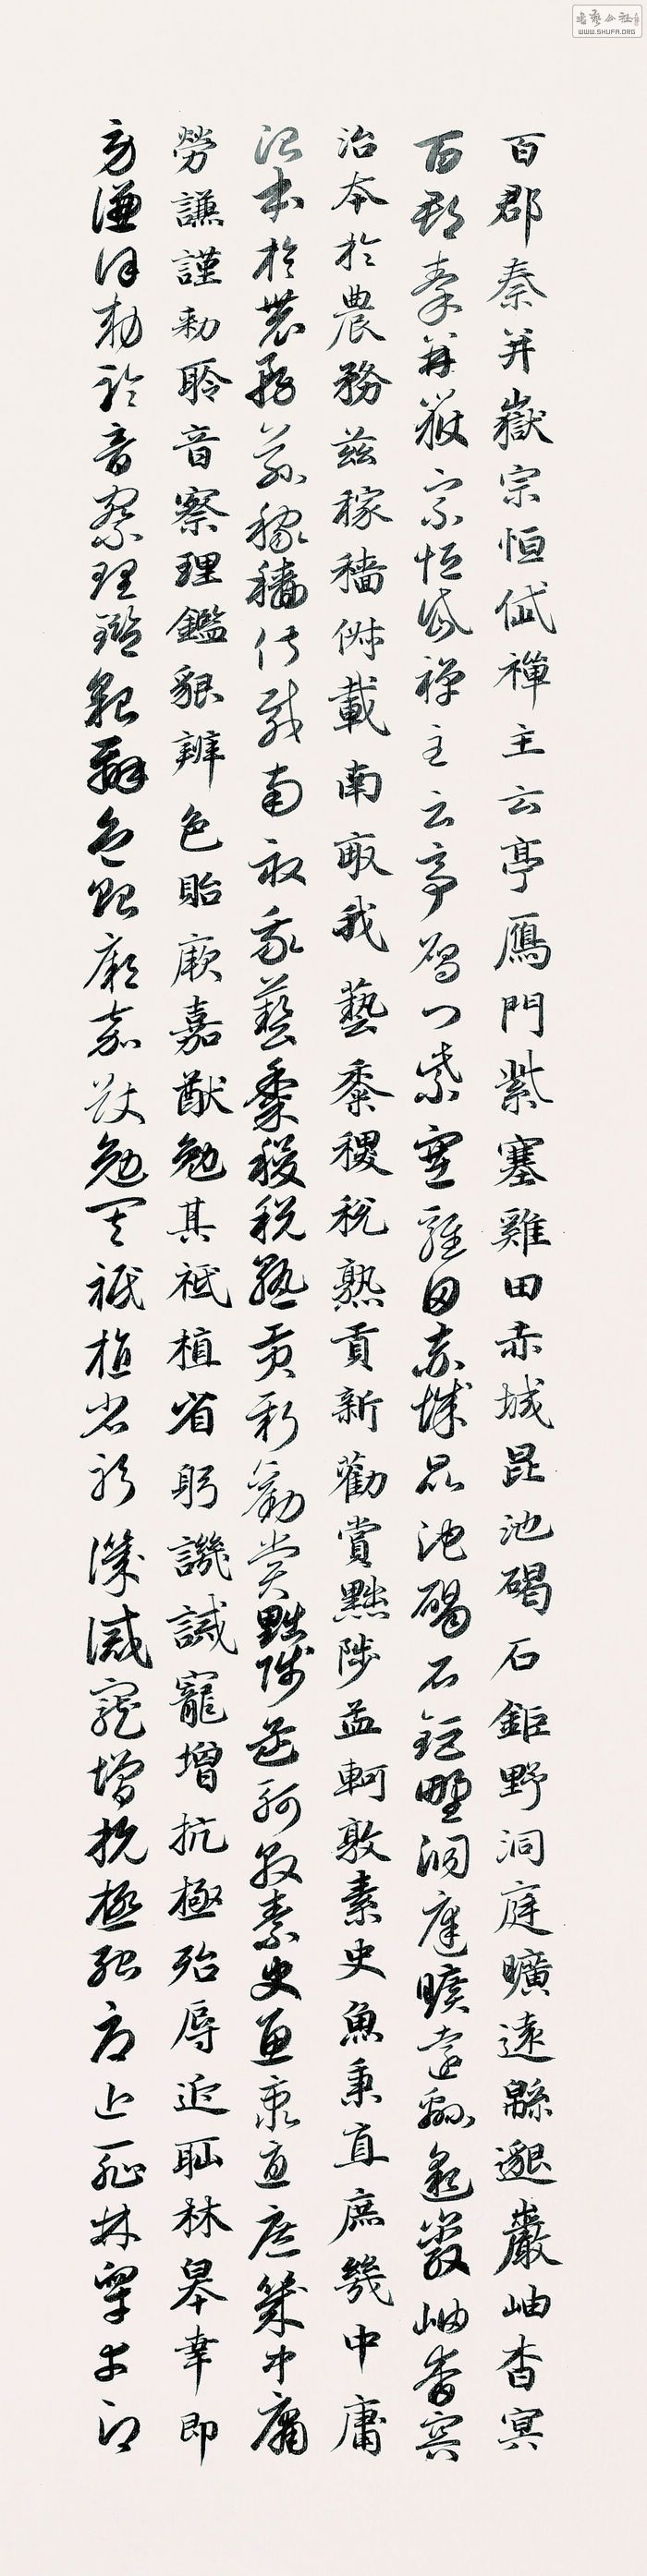 百郡秦并嶽宗恒岱禪主云亭鴈門紫塞雞田赤城昆池碣石鉅野洞庭曠遠緜邈巖岫杳冥
百郡秦并嶽宗恒岱禪主云亭鴈門紫塞雞田赤城昆池碣石鉅野洞庭曠遠緜邈巖岫杳冥
治本於農務茲稼穡俶載南畝我藝黍稷稅熟貢新勸賞黜陟孟軻敦素史魚秉直庶幾中庸
治本於農務茲稼穡俶載南畝我藝黍稷稅熟貢新勸賞黜陟孟軻敦素史魚秉直庶幾中庸
勞謙謹勅聆音察理鑑貌辨色貽厥嘉猷勉其祗植省躬譏誡寵增抗極殆辱近恥林皋幸即
勞謙謹勅聆音察理鑑貌辨色貽厥嘉猷勉其祗植省躬譏誡寵增抗極殆辱近恥林皋幸即
WWW.SHUFA.ORG